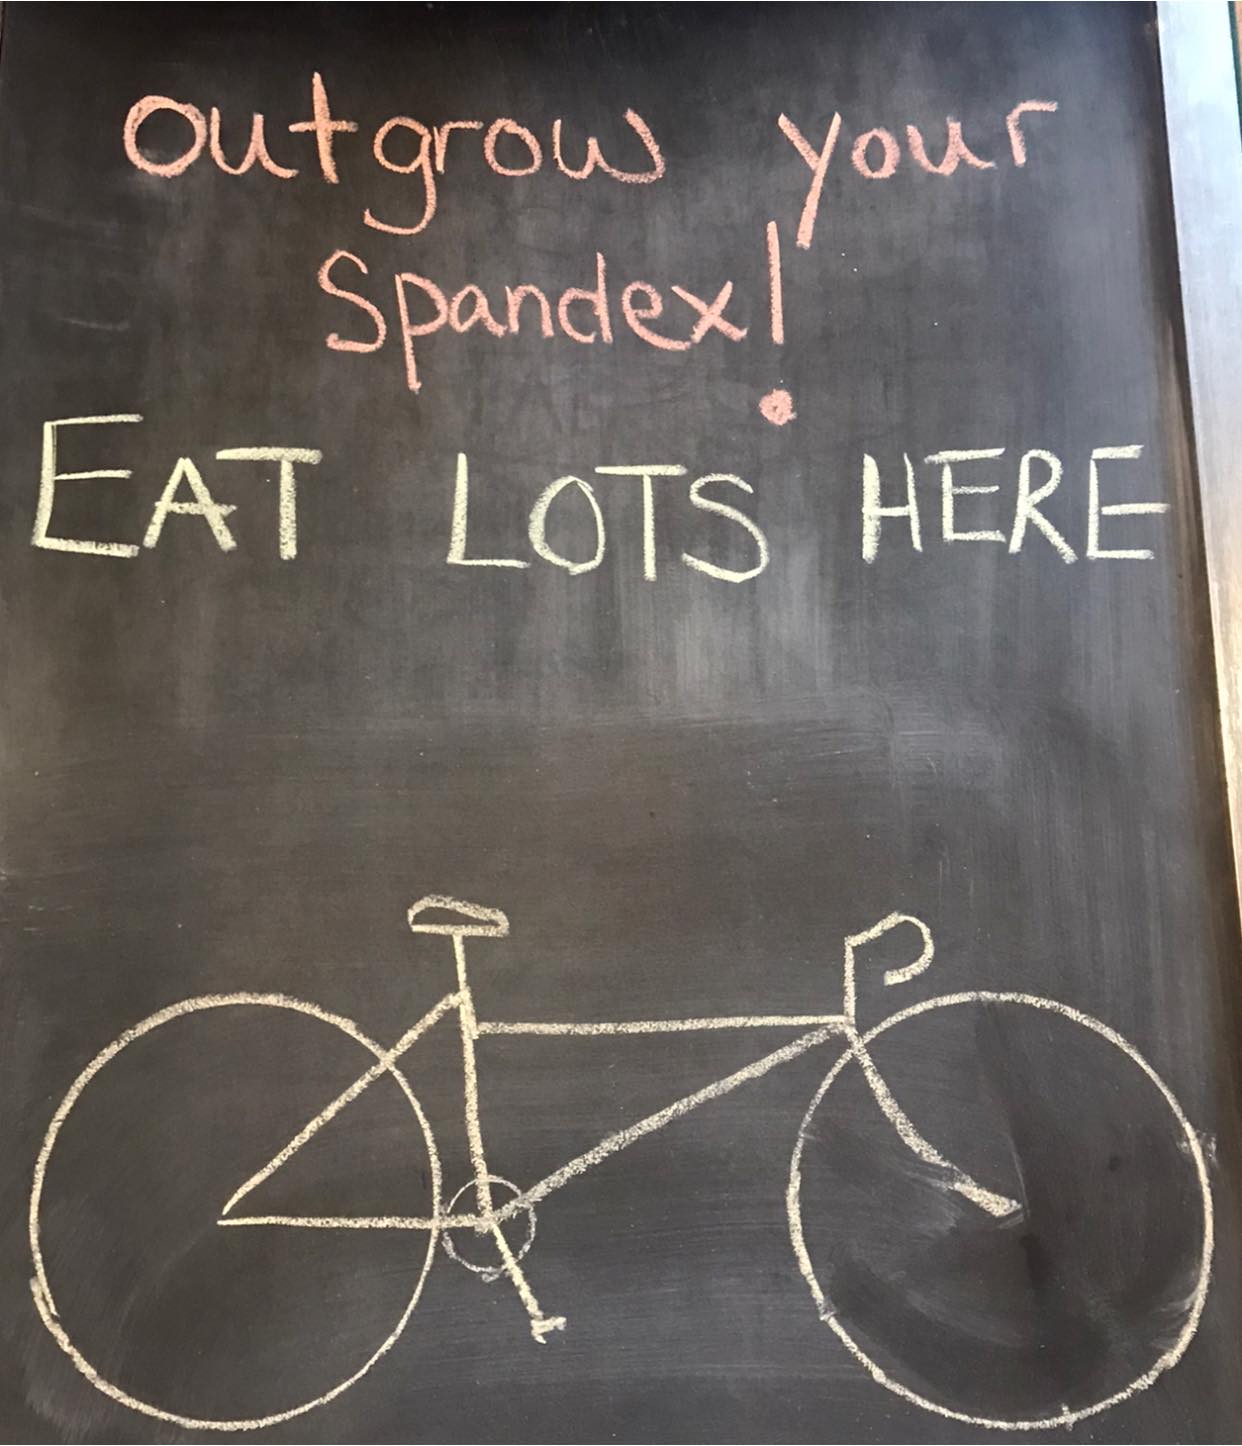 outgrow your
Spandex!
EAT LOTS HERE